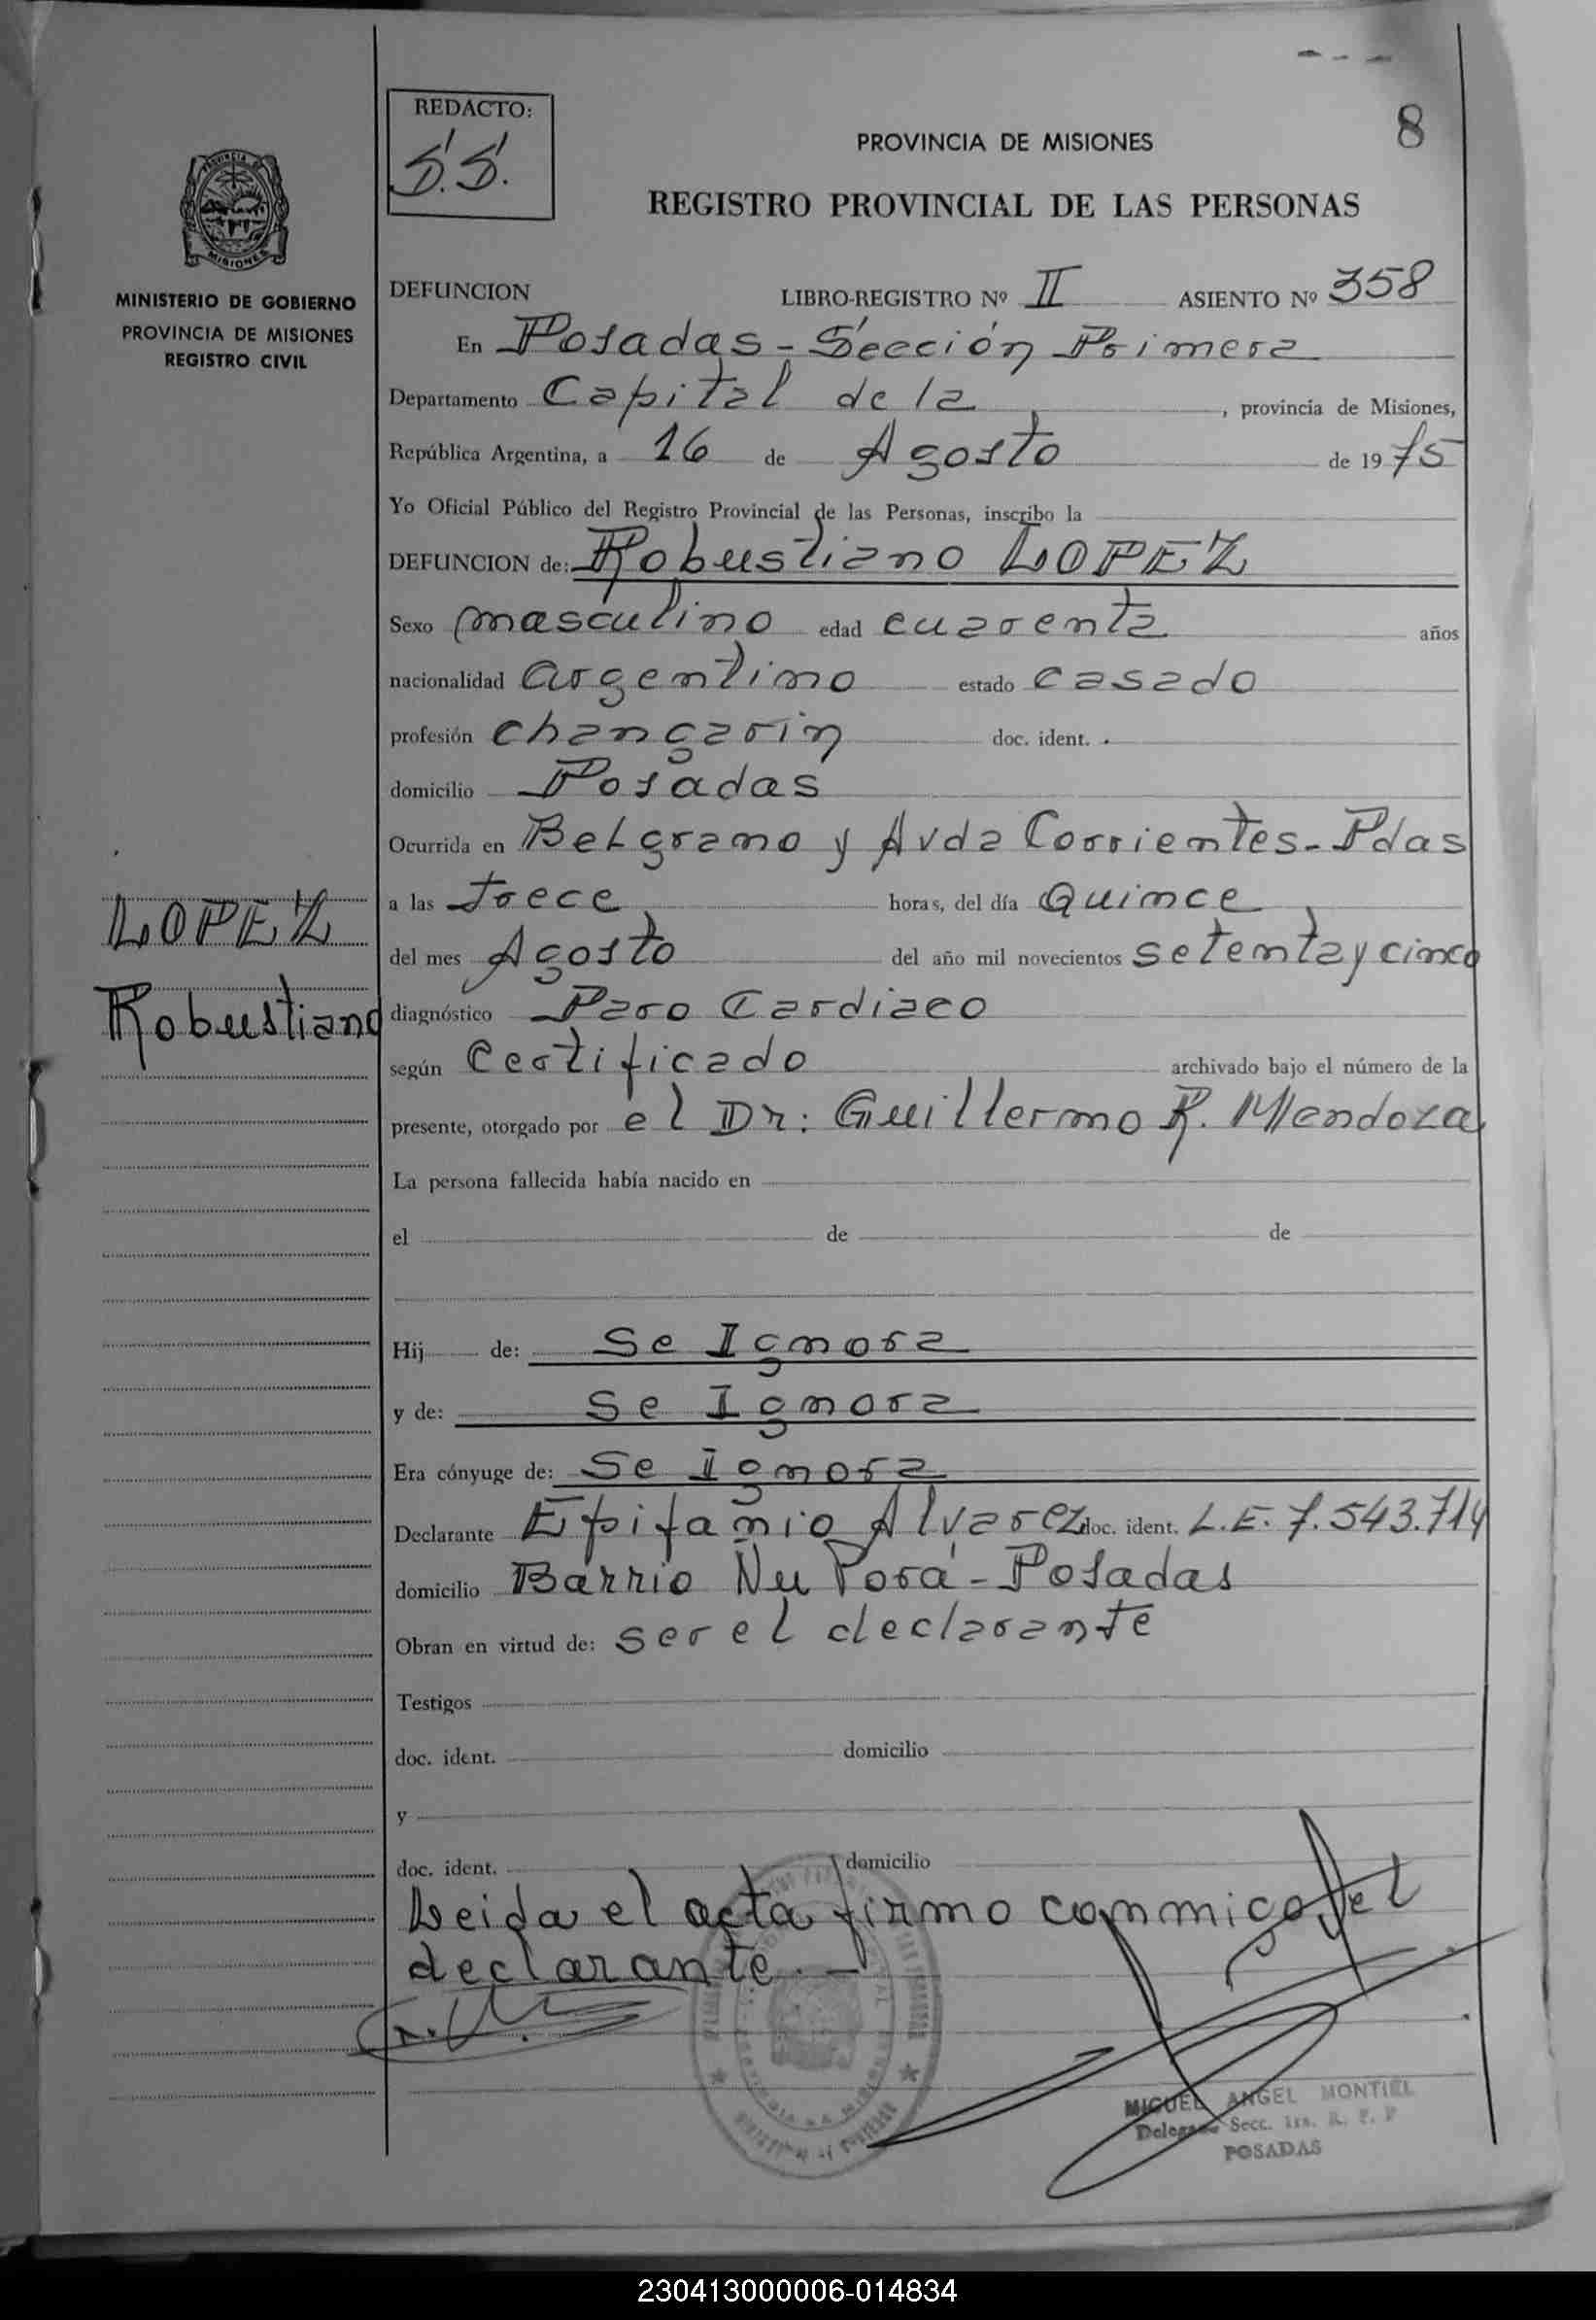 8
REDACTO:
S.S.
PROVINCIA DE MISIONES
REGISTRO PROVINCIAL DE LAS PERSONAS
MISIONES
MINISTERIO DE GOBIERNO
PROVINCIA DE MISIONES
REGISTRO CIVIL
DEFUNCION LIBRO-REGISTRO Nº II ASIENTO Nº 358
En Posadas - Sección Primera
Departamento Capital de la, provincia de Misiones,
República Argentina, a 16 de Agosto de 1975
Yo Oficial Público del Registro Provincial de las Personas, inscribo la
DEFUNCION de: Robustiano LOPEZ
Sexo masculino edad cuarenta años
nacionalidad argentino estado casado
profesión changarín doc. ident.
domicilio Posadas
Ocurrida en Belgrano y Avda Corrientes - Pdas
a las trece horas, del día Quince
del mes Agosto del año mil novecientos setenta y cinco
diagnóstico Paro Cardiaco
según Certificado archivado bajo el número de la
presente, otorgado por el Dr: Guillermo R. Mendoza
LOPEZ
Robustiano
La persona fallecida había nacido en
el de de
Hij de: Se Ignora
y de: Se Ignora
Era cónyuge de: Se Ignora
Declarante Epifanio Alvarez doc. ident. L.E. 7.543.714
domicilio Barrio Ñu Porá - Posadas
Obran en virtud de: ser el declarante
Testigos
doc. ident. domicilio
y
doc. ident. domicilio
Leida el acta firmo conmigo el
declarante. -
MIGUEL ANGEL MONTIEL
Delegado Secc. 1ra. R. P. P
POSADAS
230413000006-014834